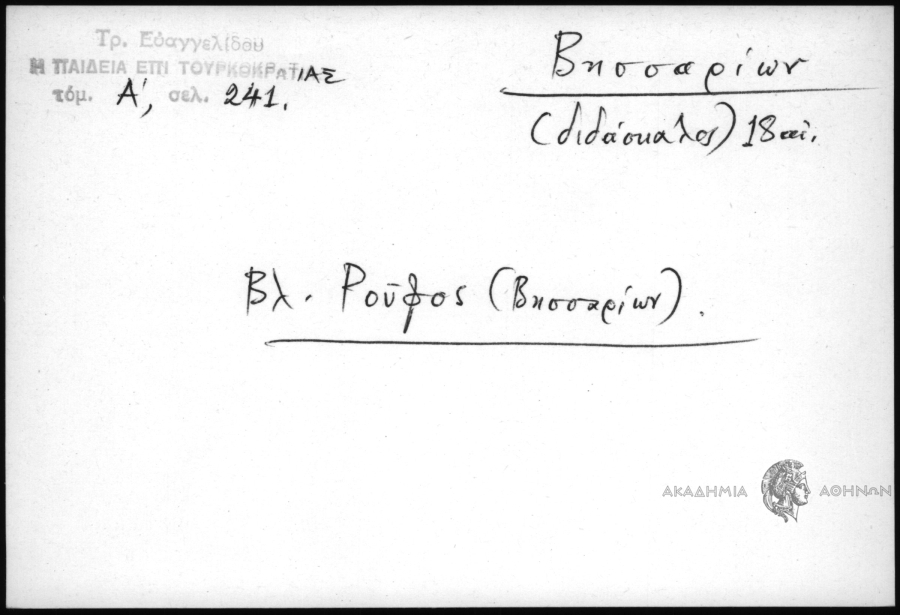 Τρ. Εὐαγγελίδου
Η ΠΑΙΔΕΙΑ ΕΠΙ ΤΟΥΡΚΟΚΡΑΤΙΑΣ
τόμ. Α΄, σελ. 241.
Βησσαρίων
(διδάσκαλος) 18 αἰ.
Βλ. Ροῦφος (Βησσαρίων).
ΑΚΑΔΗΜΙΑ ΑΘΗΝΩΝ